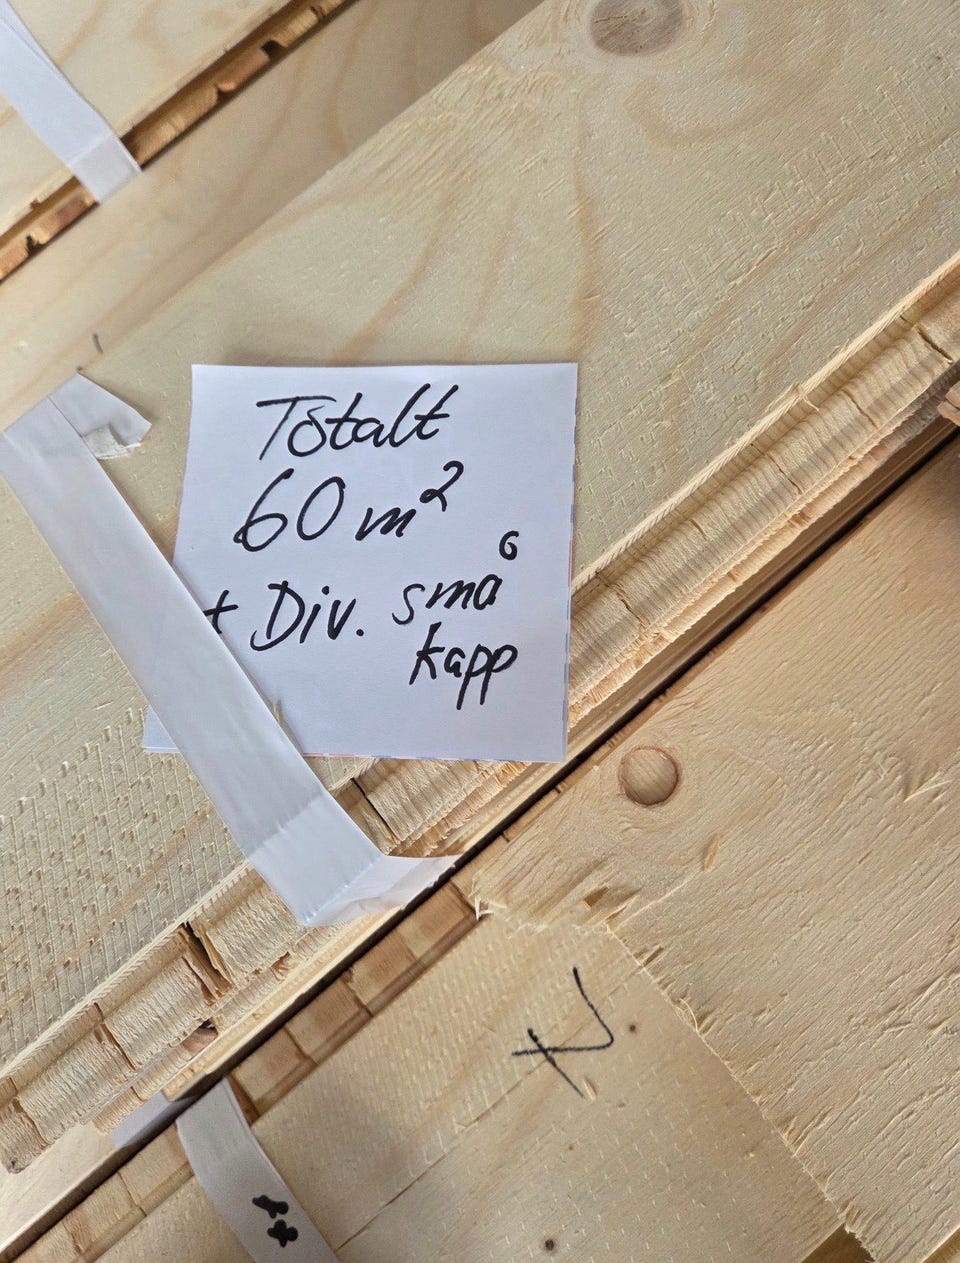 Totalt
60 m²
+ Div. små
kapp